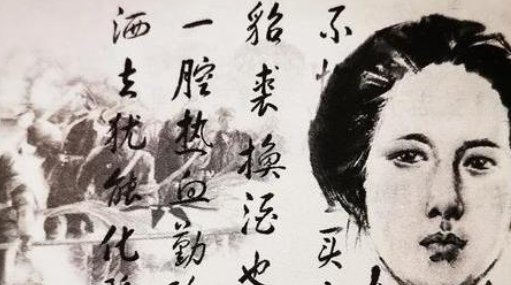 不买
貂裘换酒也
一腔热血勤
洒去犹能化